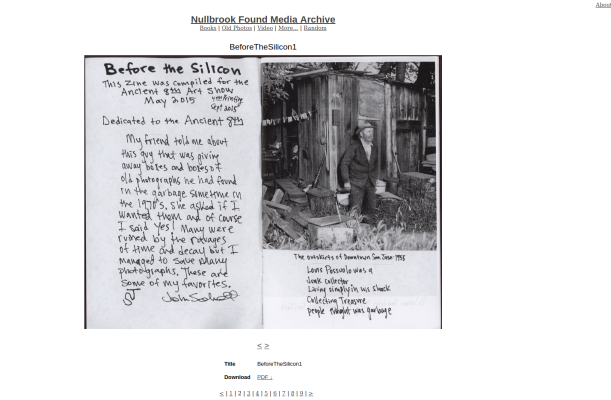 About
Nullbrook Found Media Archive
Books | Old Photos | Video | More... | Random
BeforeTheSilicon1
Before the Silicon
This Zine was compiled for the
Ancient 8th Art Show
May 2015
Sept 2015
Dedicated to the Ancient 8th
My friend told me about
this guy that was giving
away boxes and boxes of
old photographs he had found
in the garbage sometime in
the 1970's. She asked if I
wanted them and of course
I said Yes! Many were
ruined by the ravages
of time and decay but I
managed to save many
photographs. These are
some of my favorites.
The outskirts of Downtown San Jose 1935
Louis Pasquale was a
Junk collector
Living simply in his shack
Collecting Treasure
people thought was garbage
< >
Title BeforeTheSilicon1
Download PDF ↓
< | 1 | 2 | 3 | 4 | 5 | 6 | 7 | 8 | 9 | >